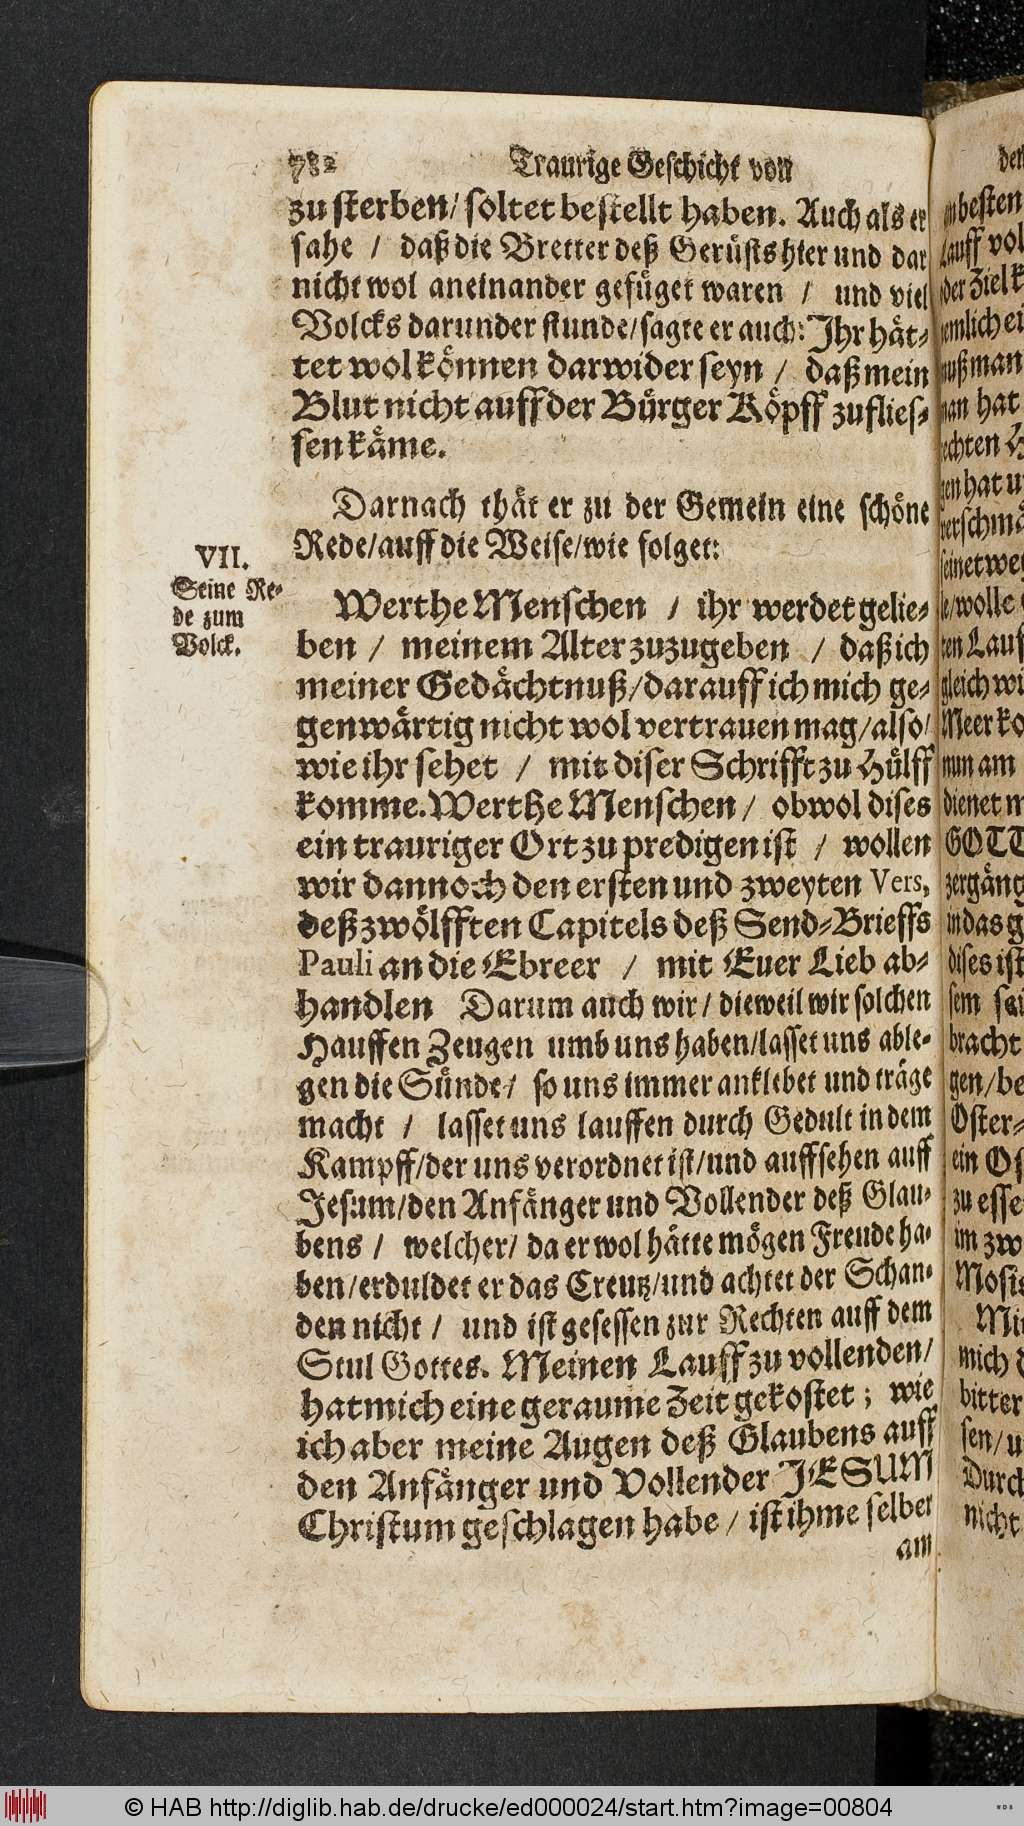 782 Traurige Geschicht von
zu sterben/ soltet bestellt haben. Auch als er
sahe / daß die Bretter deß Gerüsts hier und dar
nicht wol aneinander gefüget waren / und viel
Volcks darunder stunde/ sagte er auch: Ihr hät-
tet wol können darwider seyn / daß mein
Blut nicht auff der Bürger Köpff zu flies-
sen käme.
Darnach thät er zu der Gemein eine schöne
Rede/ auff die Weise/ wie folget:
VII.
Seine Re-
de zum
Volck.
Werthe Menschen / ihr werdet gelie-
ben / meinem Alter zuzugeben / daß ich
meiner Gedächtnuß/ darauff ich mich ge-
genwärtig nicht wol vertrauen mag/ also/
wie ihr sehet / mit diser Schrifft zu Hülff
komme. Werthe Menschen / obwol dises
ein trauriger Ort zu predigen ist / wollen
wir dannoch den ersten und zweyten Vers,
deß zwölfften Capitels deß Send-Brieffs
Pauli an die Ebreer / mit Euer Lieb ab-
handlen Darum auch wir / dieweil wir solchen
Hauffen Zeugen umb uns haben/ lasset uns able-
gen die Sünde / so uns immer anklebet und träge
macht / lasset uns lauffen durch Gedult in dem
Kampff/ der uns verordnet ist/ und auffsehen auff
Jesum/ den Anfänger und Vollender deß Glau-
bens / welcher/ da er wol hätte mögen Freude ha-
ben / erduldet er das Creutz/ und achtet der Schan-
den nicht / und ist gesessen zur Rechten auff dem
Stul Gottes. Meinen Lauff zu vollenden/
hat mich eine geraume Zeit gekostet; wie
ich aber meine Augen deß Glaubens auff
den Anfänger und Vollender JESUM
Christum geschlagen habe / ist ihme selber
am
besten
vol
der Ziel
ei
man
hat
hat u
Lauf
gleich wi
Meer ko
nun am
dienet m
GOTT
zergäng
in das g
dises ist
sem sei
bracht
gen/ be
Oster-
ein Os
zu esse
im zw
Mosis
Mi
mich d
bitter
sen/ u
Durch
nicht
© HAB http://diglib.hab.de/drucke/ed000024/start.htm?image=00804